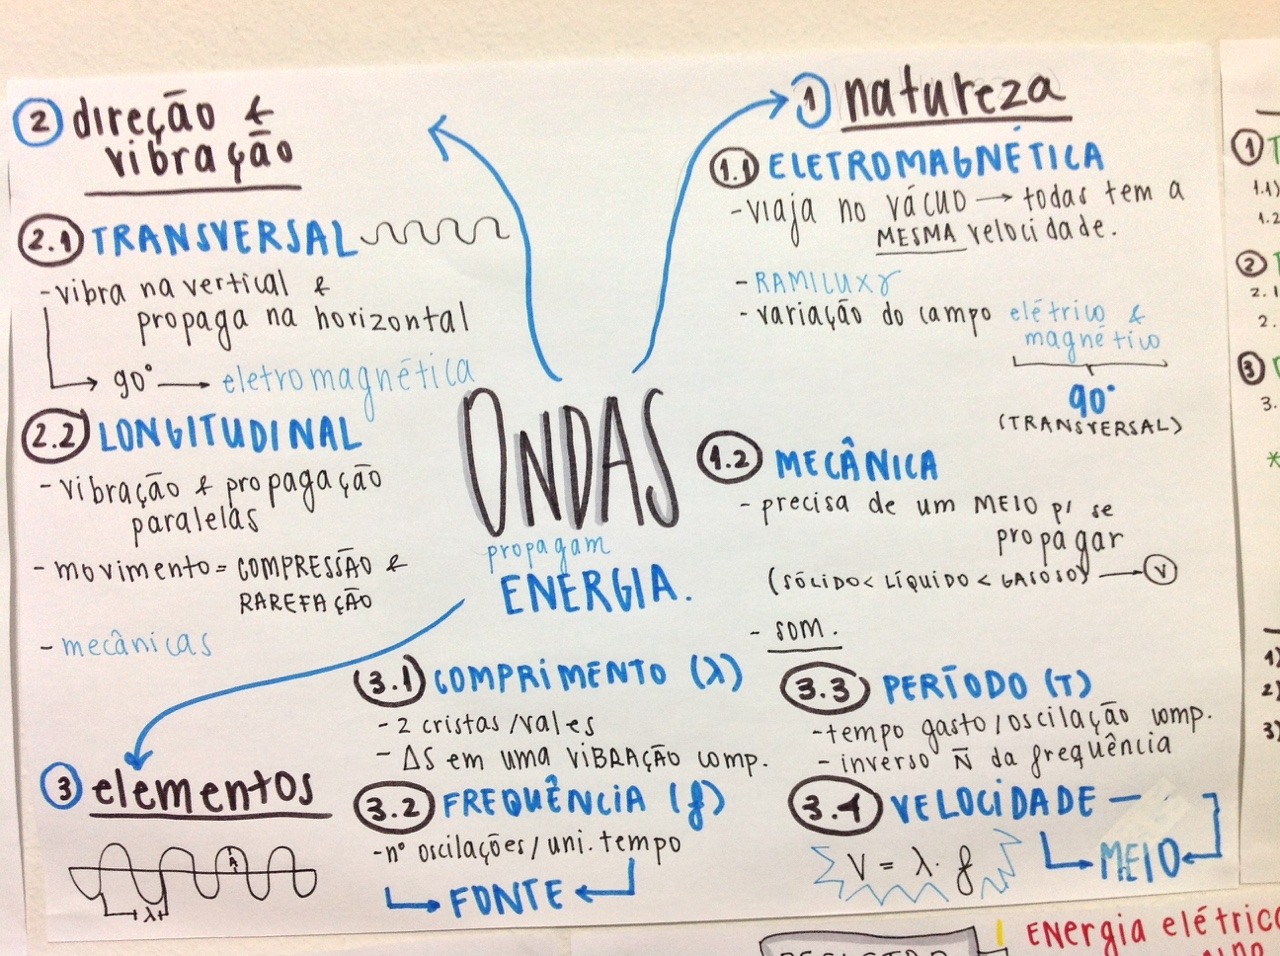 ONDAS
propagam
ENERGIA.
1 natureza
1.1 ELETROMAGNÉTICA
- viaja no VÁCUO → todas tem a
MESMA velocidade.
- RAMILUXγ
- variação do campo elétrico &
magnético
90°
(TRANSVERSAL)
1.2 MECÂNICA
- precisa de um MEIO p/ se
propagar
(SÓLIDO < LÍQUIDO < GASOSO) → V
- SOM.
2 direção &
vibração
2.1 TRANSVERSAL
- vibra na vertical &
propaga na horizontal
→ 90° → eletromagnética
2.2 LONGITUDINAL
- vibração & propagação
paralelas
- movimento = COMPRESSÃO &
RAREFAÇÃO
- mecânicas
3 elementos
A
λ
3.1 COMPRIMENTO (λ)
- 2 cristas/vales
- ΔS em uma VIBRAÇÃO comp.
3.2 FREQUÊNCIA (f)
- nº oscilações/uni. tempo
FONTE
3.3 PERÍODO (T)
- tempo gasto/oscilação comp.
- inverso Ñ da frequência
3.4 VELOCIDADE —
V = λ. f
MEIO
1 T
1.1)
1.2
2 T
2.1
2.
3
3.
*
1)
2)
3)
ENERgia elétrica